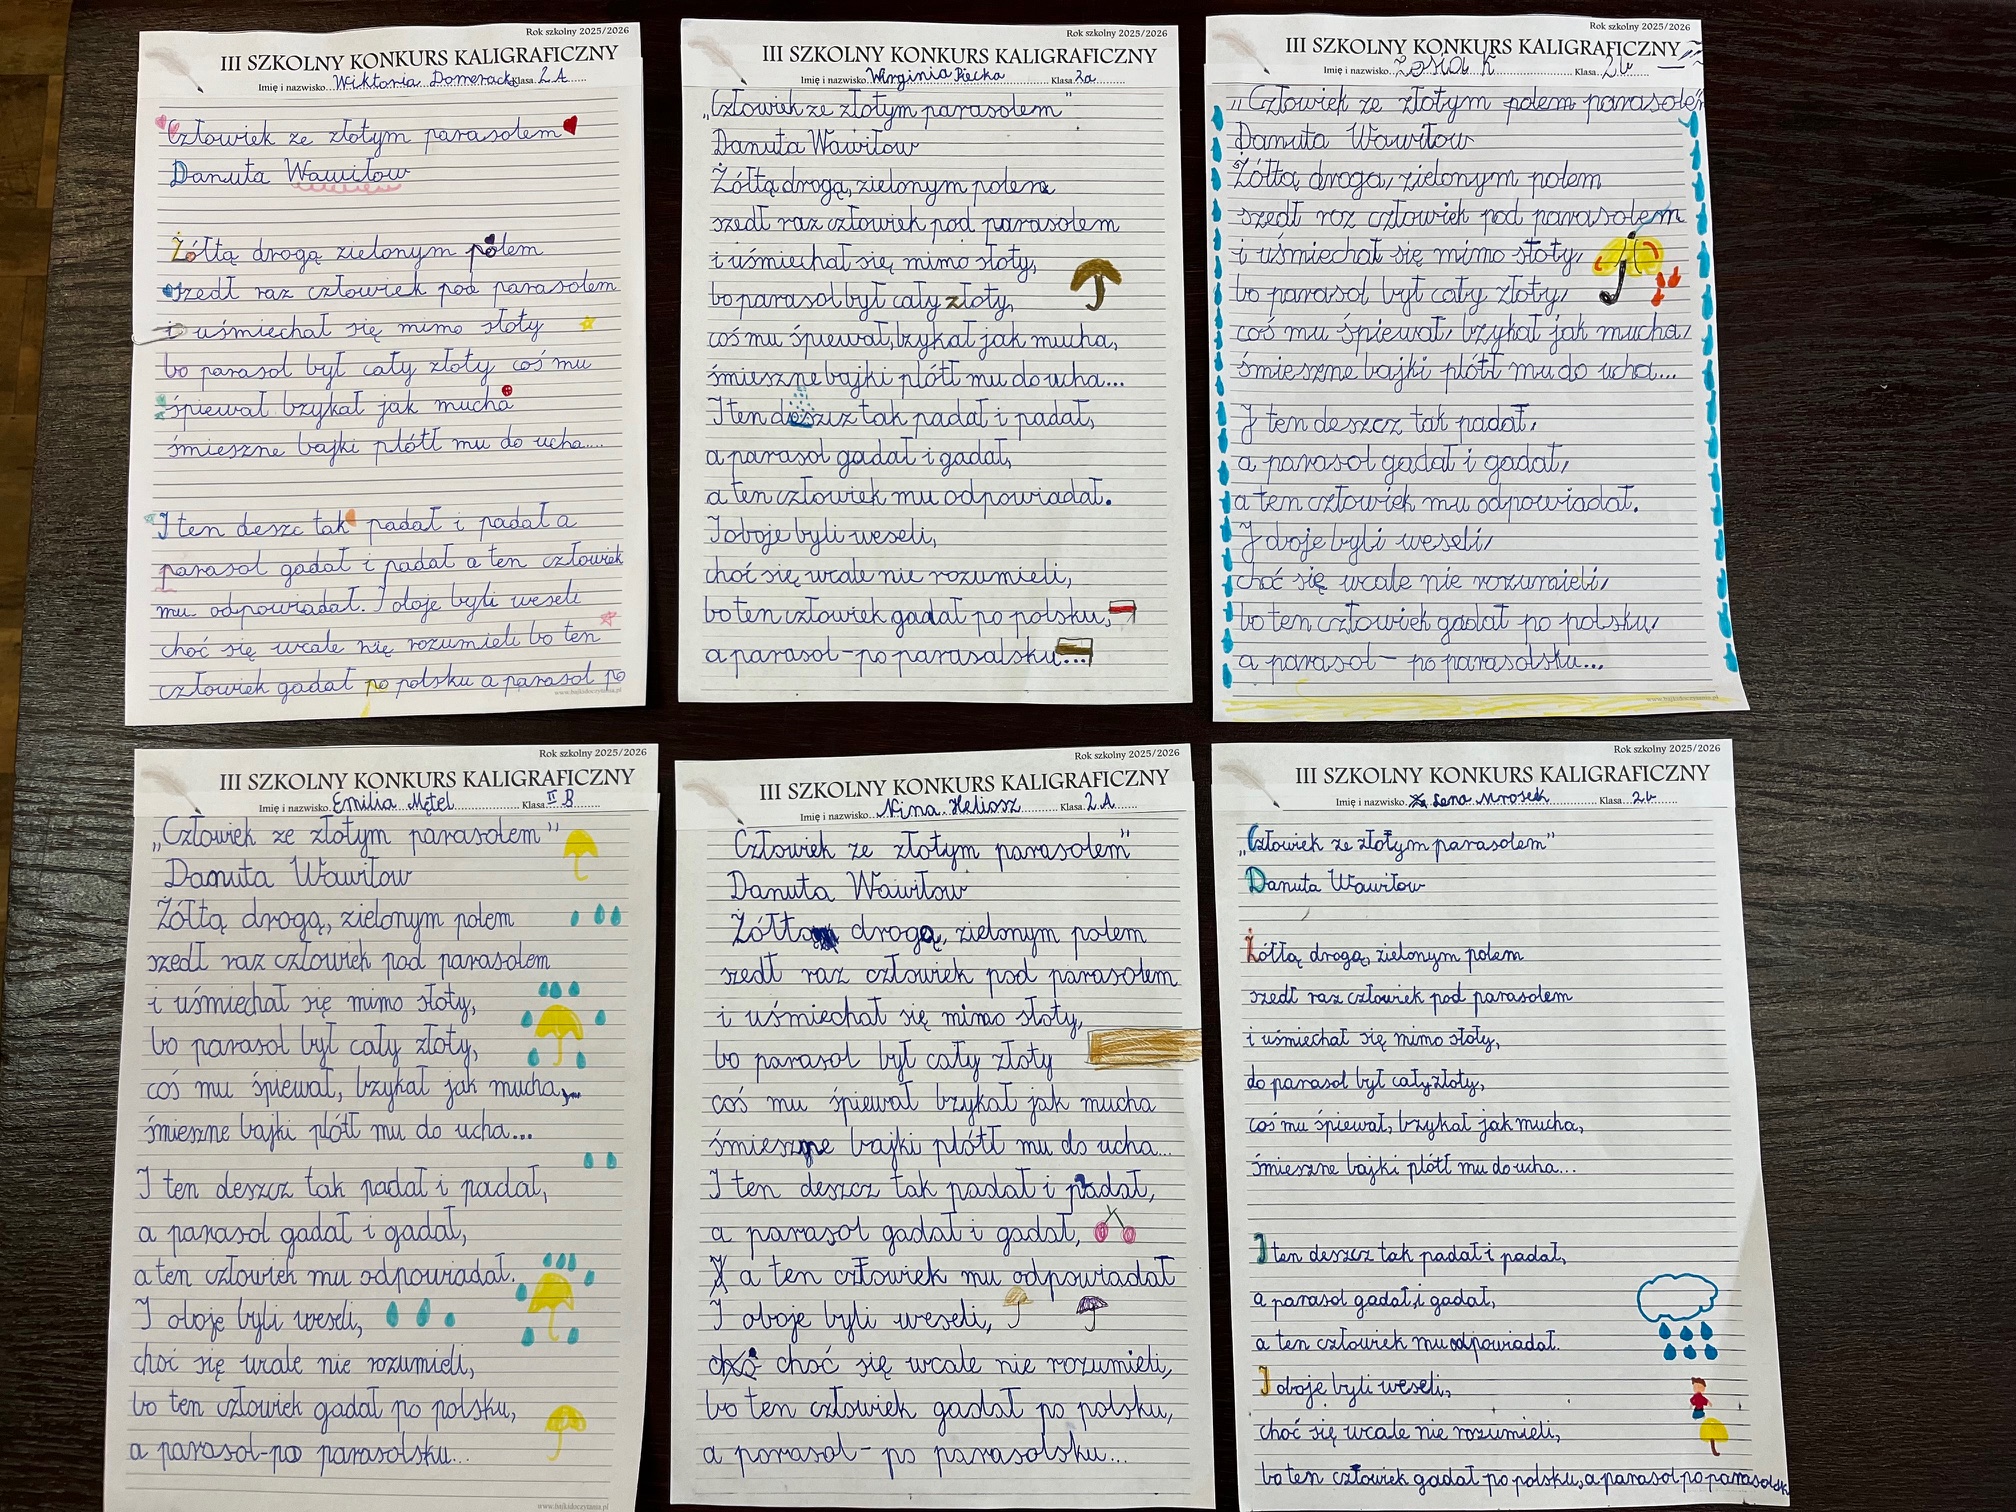 Rok szkolny 2025/2026
III SZKOLNY KONKURS KALIGRAFICZNY
Imię i nazwisko Wiktoria Domerack Klasa 2 A
Człowiek ze złotym parasolem
Danuta Wawiłow
Żółtą drogą zielonym polem
szedł raz człowiek pod parasolem
i uśmiechał się mimo słoty
bo parasol był cały złoty coś mu
śpiewał bzykał jak mucha
śmieszne bajki plótł mu do ucha....
I ten deszc tak padał i padał a
parasol gadał i padał a ten człowiek
mu odpowiadał. I oboje byli weseli
choć się wcale nie rozumieli bo ten
człowiek gadał po polsku a parasol po
www.bajkidoczytania.pl
Rok szkolny 2025/2026
III SZKOLNY KONKURS KALIGRAFICZNY
Imię i nazwisko Wirginia Piecka Klasa 2a
„Człowiek ze złotym parasolem"
Danuta Wawiłow
Żółtą drogą, zielonym polem
szedł raz człowiek pod parasolem
i uśmiechał się, mimo słoty,
bo parasol był cały złoty,
coś mu śpiewał, bzykał jak mucha,
śmieszne bajki plótł mu do ucha...
I ten deszcz tak padał i padał,
a parasol gadał i gadał,
a ten człowiek mu odpowiadał.
I oboje byli weseli,
choć się, wcale nie rozumieli,
bo ten człowiek gadał po polsku,
a parasol-po parasalsku...
Rok szkolny 2025/2026
III SZKOLNY KONKURS KALIGRAFICZNY
Imię i nazwisko Zosia K Klasa 2b
„Człowiek ze złotym polem parasole
Danuta Wawiłow
Żółtą drogą, zielonym polem
szedł raz człowiek pod parasolem
i uśmiechał się mimo słoty,
bo parasol był cały złoty,
coś mu śpiewał, bzykał jak mucha,
śmieszne bajki plótł mu do ucha...
I ten deszcz tak padał,
a parasol gadał i gadał,
a ten człowiek mu odpowiadał.
I doje byli weseli,
choć się wcale nie rozumieli,
bo ten człowiek gadał po polsku,
a parasol - po parasolsku...
www.bajkidoczytania.pl
Rok szkolny 2025/2026
III SZKOLNY KONKURS KALIGRAFICZNY
Imię i nazwisko Emilia Mętel Klasa II B
„Człowiek ze złotym parasolem"
Danuta Wawiłow
Żółtą drogą, zielonym polem
szedł raz człowiek pod parasolem
i uśmiechał się mimo słoty,
bo parasol był cały złoty,
coś mu śpiewał, bzykał jak mucha,
śmieszne bajki plótł mu do ucha...
I ten deszcz tak padał i padał,
a parasol gadał i gadał,
a ten człowiek mu odpowiadał.
I oboje byli weseli,
choć się wcale nie rozumieli,
bo ten człowiek gadał po polsku,
a parasol-po parasolsku...
www.bajkidoczytania.pl
Rok szkolny 2025/2026
III SZKOLNY KONKURS KALIGRAFICZNY
Imię i nazwisko Nina Heliosz Klasa 2 A
Człowiek ze złotym parasolem"
Danuta Wawiłow
Żółtą drogą, zielonym polem
szedł raz człowiek pod parasolem
i uśmiechał się mimo słoty,
bo parasol był cały złoty
coś mu śpiewał bzykał jak mucha
śmieszne bajki plótł mu do ucha...
I ten deszcz tak padał i padał,
a parasol gadał i gadał,
a ten człowiek mu odpowiadał
I oboje byli weseli,
choć się wcale nie rozumieli,
bo ten człowiek gadał po polsku,
a porasol - po parasolsku...
Rok szkolny 2025/2026
III SZKOLNY KONKURS KALIGRAFICZNY
Imię i nazwisko Lena Mrosek Klasa 2b
„Człowiek ze złotym parasolem"
Danuta Wawiłow
Żółtą drogą, zielonym polem
szedł raz człowiek pod parasolem
i uśmiechał się mimo słoty,
do parasol był cały złoty,
coś mu śpiewał, bzykał jak mucha,
śmieszne bajki plótł mu do ucha...
I ten deszcz tak padał i padał,
a parasol gadał, i gadał,
a ten człowiek mu odpowiadał.
I oboje byli weseli,
choć się wcale nie rozumieli,
bo ten człowiek gadał po polsku, a parasol po parasolsk